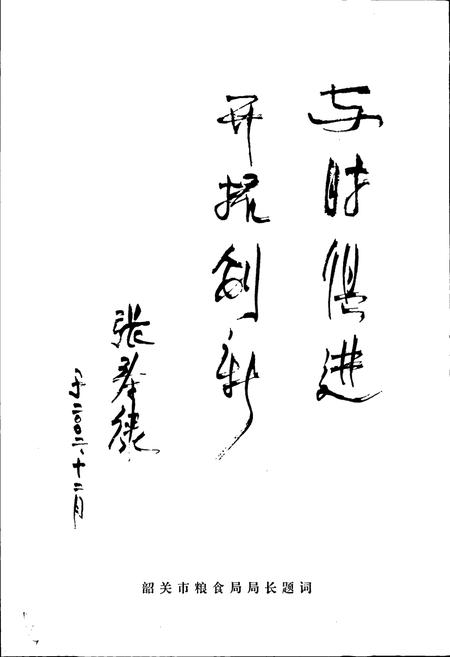 与时俱进
开拓创新
张春德
于二〇〇二、十二月
韶关市粮食局局长题词